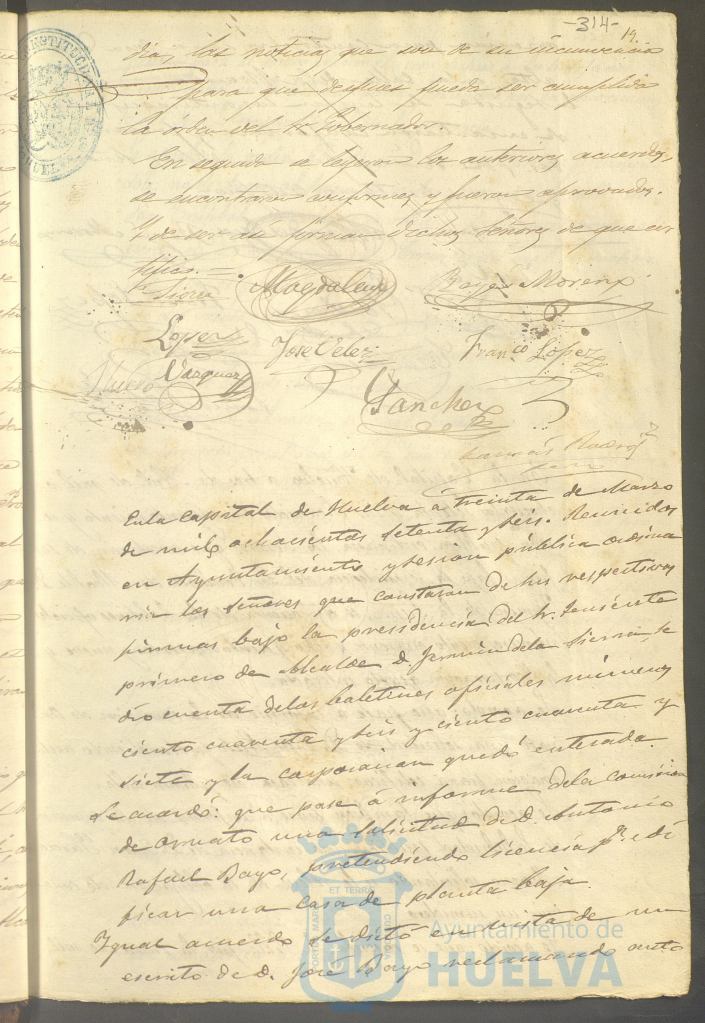 -314- 19.
dia, las noticias que son de su incumvencia
para que despues pueda ser cumplida
la órden del Sr. Gobernador.
En seguida se leyeron los anteriores acuerdos,
se encontraron conformes y fueron aprovados.
Y de ser asi firman dichos Señores de que cer
tifico.=
Magdalena Bayo Moreno
Lopez Jose Velez Franco Lopez
Vazquez
Sanchez
En la Capital de Huelva á treinta de Marzo
de mil ochocientos setenta y seis. Reunidos
en Ayuntamiento y sesion pública ordina
ria los Señores que constaran de sus respectivas
firmas bajo la presidencia del Sr. Teniente
primero de Alcalde D. Fermin de la Sierra, se
dió cuenta de los boletines oficiales números
ciento cuarenta y seis y ciento cuarenta y
siete y la corporacion quedó enterada.
Se acordó: que pase á informe de la comision
de ornato una solicitud de D. Antonio
Rafael Bayo, pretendiendo licencia pa. edi
ficar una casa de planta baja.
Ygual acuerdo se dictó en vista de un
escrito de D. José Bayo reclamando
Ayuntamiento de
HUELVA